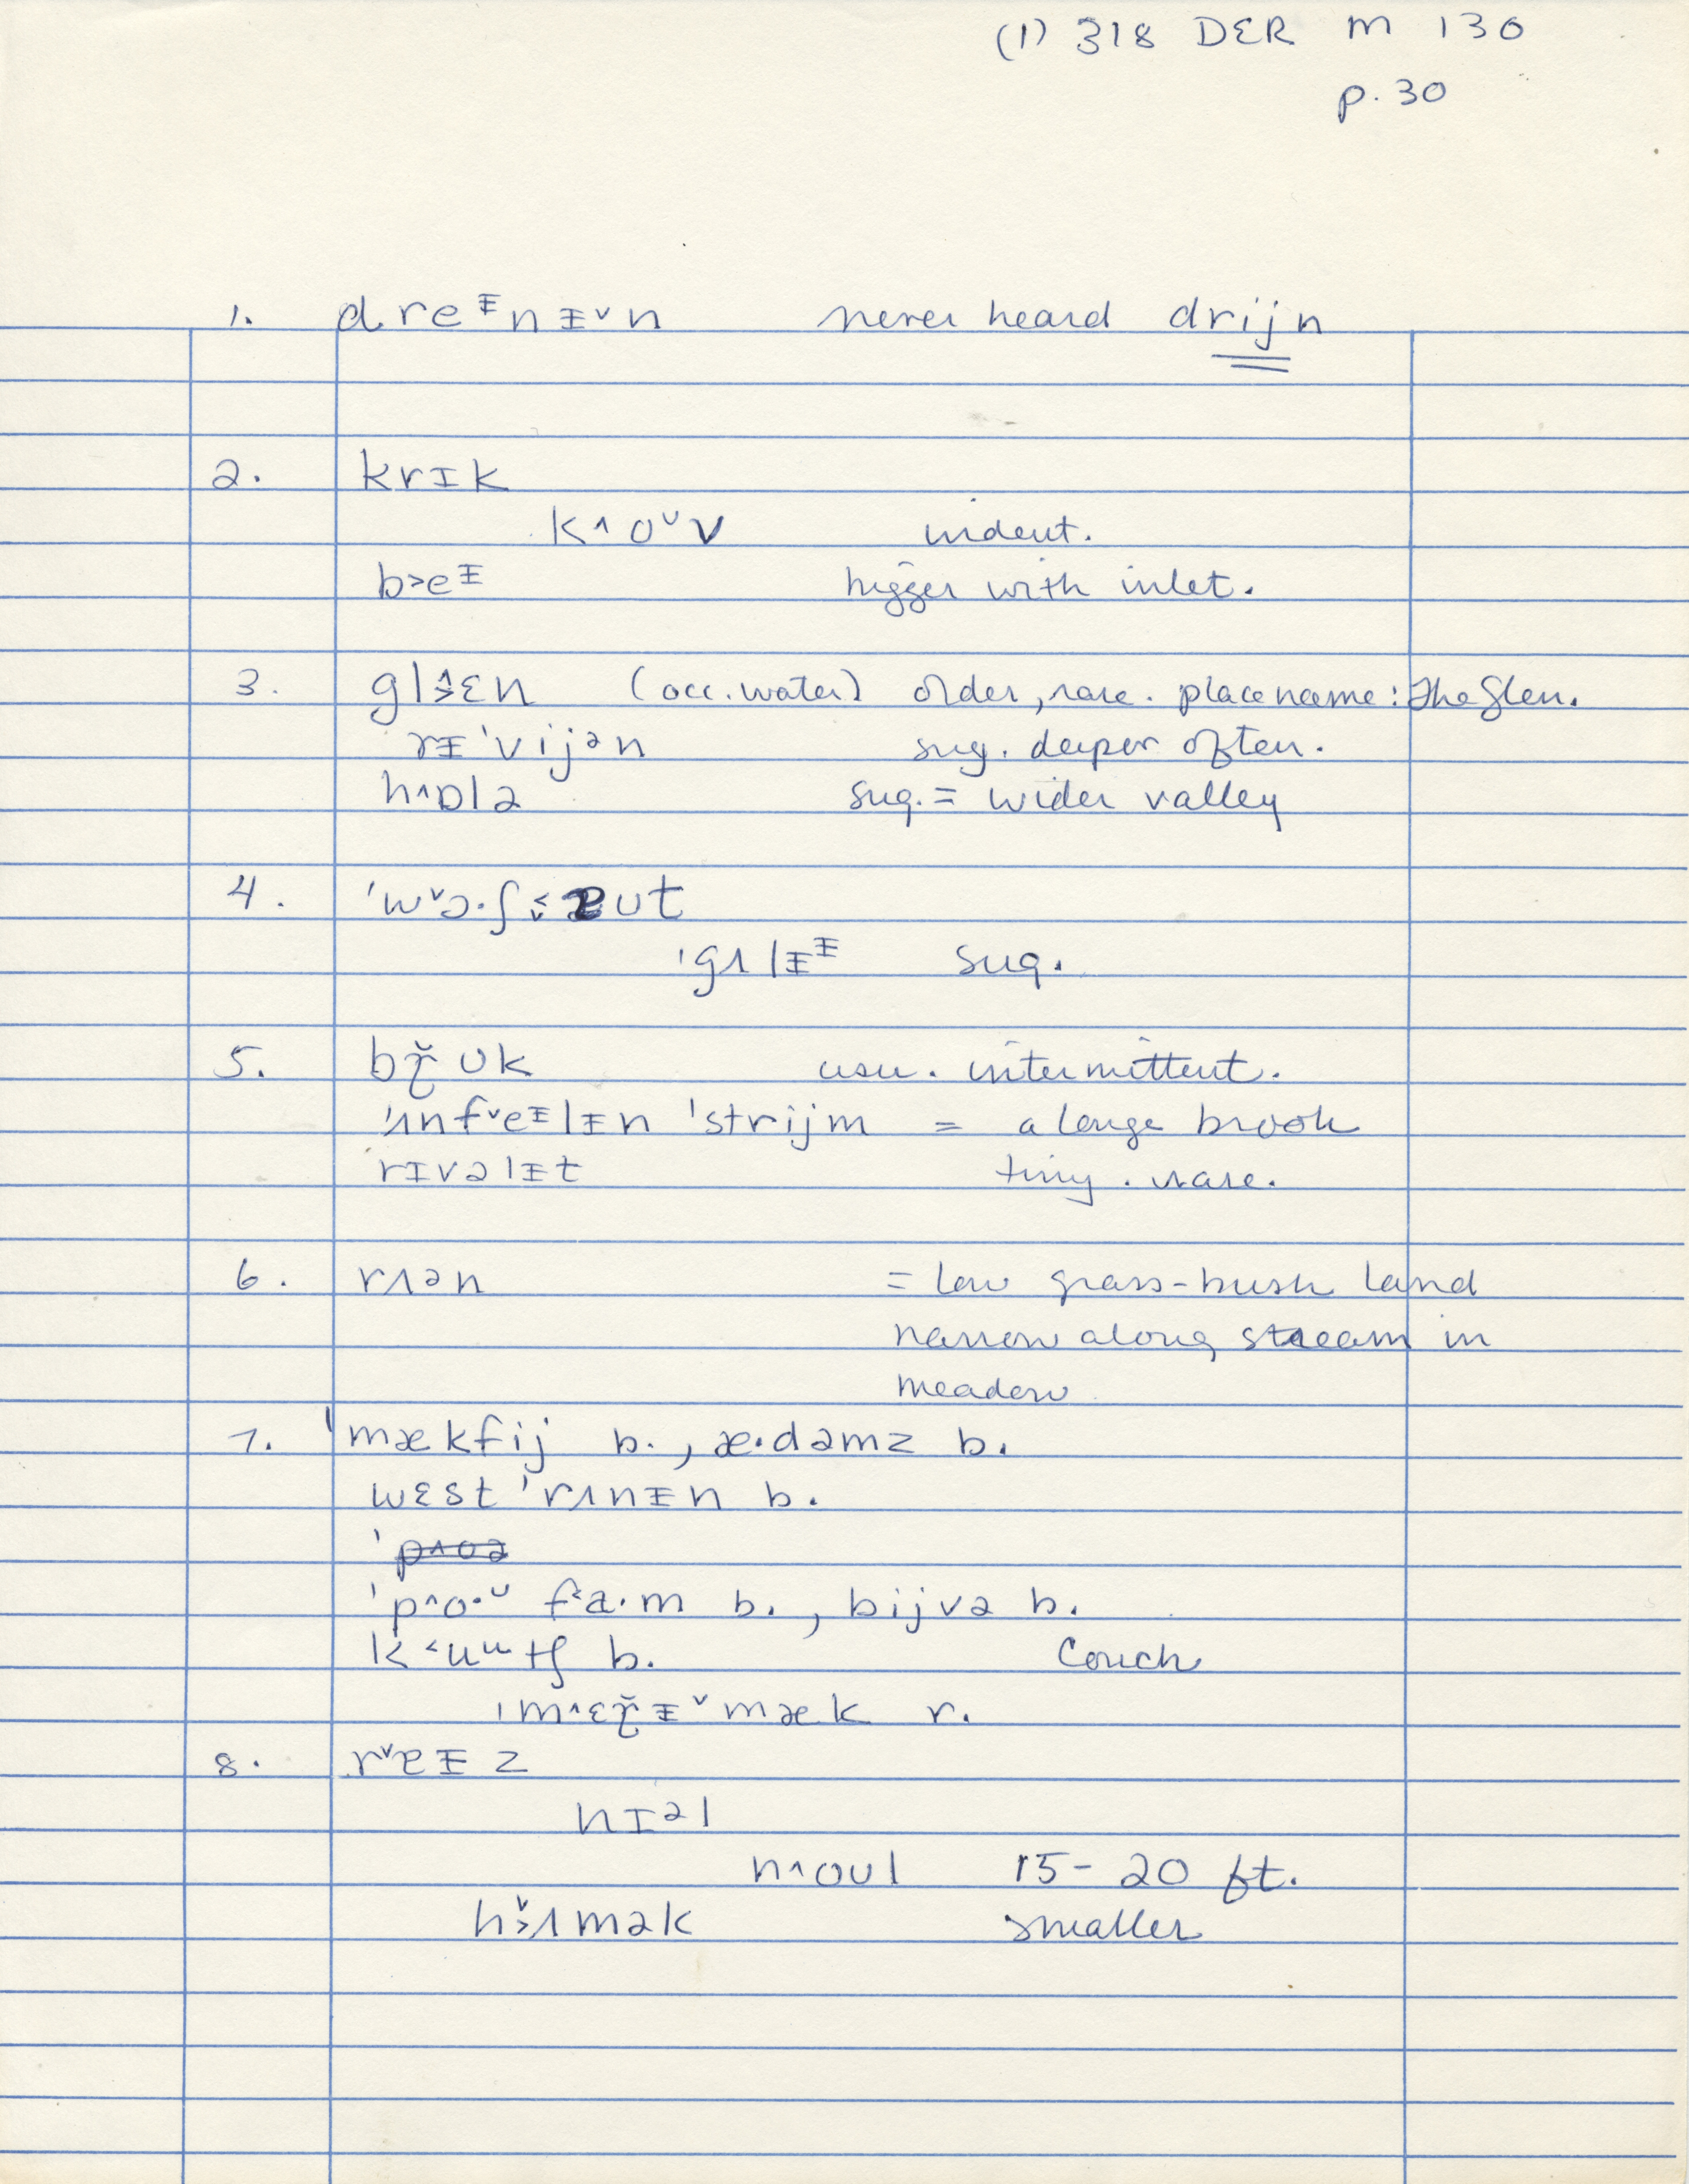 (1) 318 DER M 130
p. 30
1. dreᵻnᵻ˅n never heard drijn
2. krɪk
k˄oᵁv indent.
b˃eᵻ bigger with inlet.
3. gl˄˃ɛn (occ. water) older, rare. place name: The Glen.
rᵻˈvijən sug. deeper often.
h˄ɒlə sug. = wider valley
4. ˈw˅ɔ·ʃ ut
ˈgʌlᵻᵻ sug.
5. bʊk usu. intermittent.
ˈʌnf˅eᵻlᵻn ˈstrijm = a large brook
rɪvəlᵻt tiny. rare.
6. rʌən = low grass-bush land
narrow along stream in
meadow
7. ˈmækfij b., æ·dəmz b.
wɛst ˈrʌnᵻn b.
ˈp˄o·ᵁ f˂a·m b., bijvə b.
k˂uᵘtʃ b. Couch
ˈm˄ɛᵻ˅mæk r.
8. r˅ɐᵻz
hɪəl
n˄oʊl 15-20 ft.
h˅˃ʌmək smaller